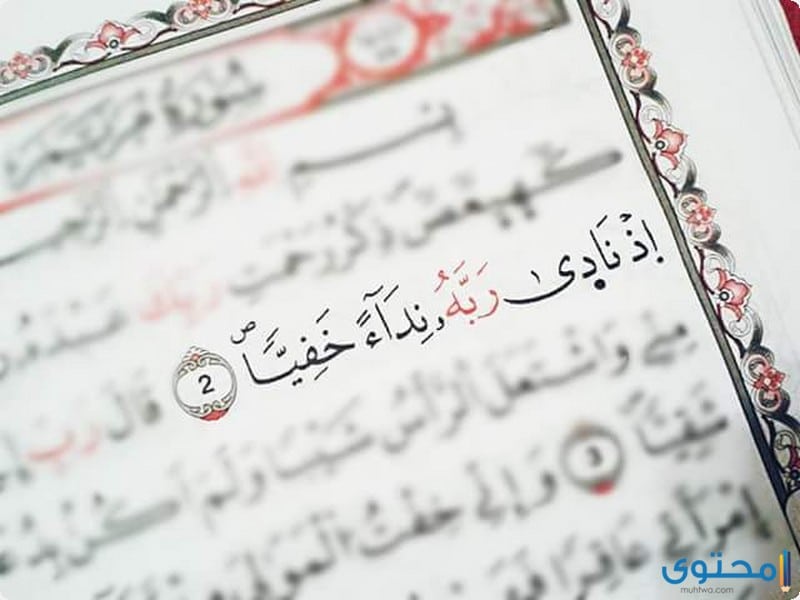 سُورَةُ مَرْيَمَ
بِسْمِ اللَّهِ الرَّحْمَٰنِ الرَّحِيمِ
كهيعص ذِكْرُ رَحْمَتِ رَبِّكَ عَبْدَهُ
إِذْ نَادِىٰ رَبَّهُۥ نِدَآءً خَفِيّاً ۖ 2 قَالَ رَبِّ
مِنِّي وَاشْتَعَلَ الرَّأْسُ شَيْباً وَلَمْ أَكُنْ
شَقِيّاً 3 وَإِنِّي خِفْتُ الْمَوَالِيَ
امْرَأَتِي عَاقِراً
محتوى
muhtwa.com